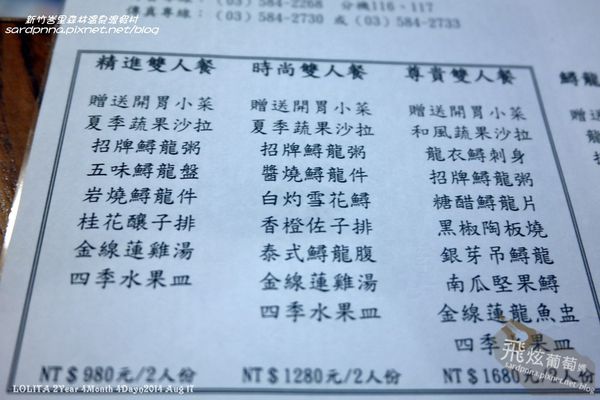 新竹峇里森林溫泉渡假村
sardpnna.pixnet.net/blog
(03) 584-2268 分機116、117
(03) 584-2730 或 (03) 584-2733
精進雙人餐
贈送開胃小菜
夏季蔬果沙拉
招牌鱘龍粥
五味鱘龍盤
岩燒鱘龍件
桂花釀子排
金線蓮雞湯
四季水果皿
NT$980元/2人份
時尚雙人餐
贈送開胃小菜
夏季蔬果沙拉
招牌鱘龍粥
醬燒鱘龍件
白灼雪花鱘
香橙佐子排
泰式鱘龍腹
金線蓮雞湯
四季水果皿
NT$1280元/2人份
尊貴雙人餐
贈送開胃小菜
和風蔬果沙拉
龍衣鱘刺身
招牌鱘龍粥
糖醋鱘龍片
黑椒陶板燒
銀芽吊鱘龍
南瓜堅果鱘
金線蓮龍魚盅
四季水果皿
NT$1680元/2人份
鱘龍
LOLITA 2Year 4Month 4Day@2014 Aug 17
飛炫葡萄媽
sardpnna.pixnet.net/blog